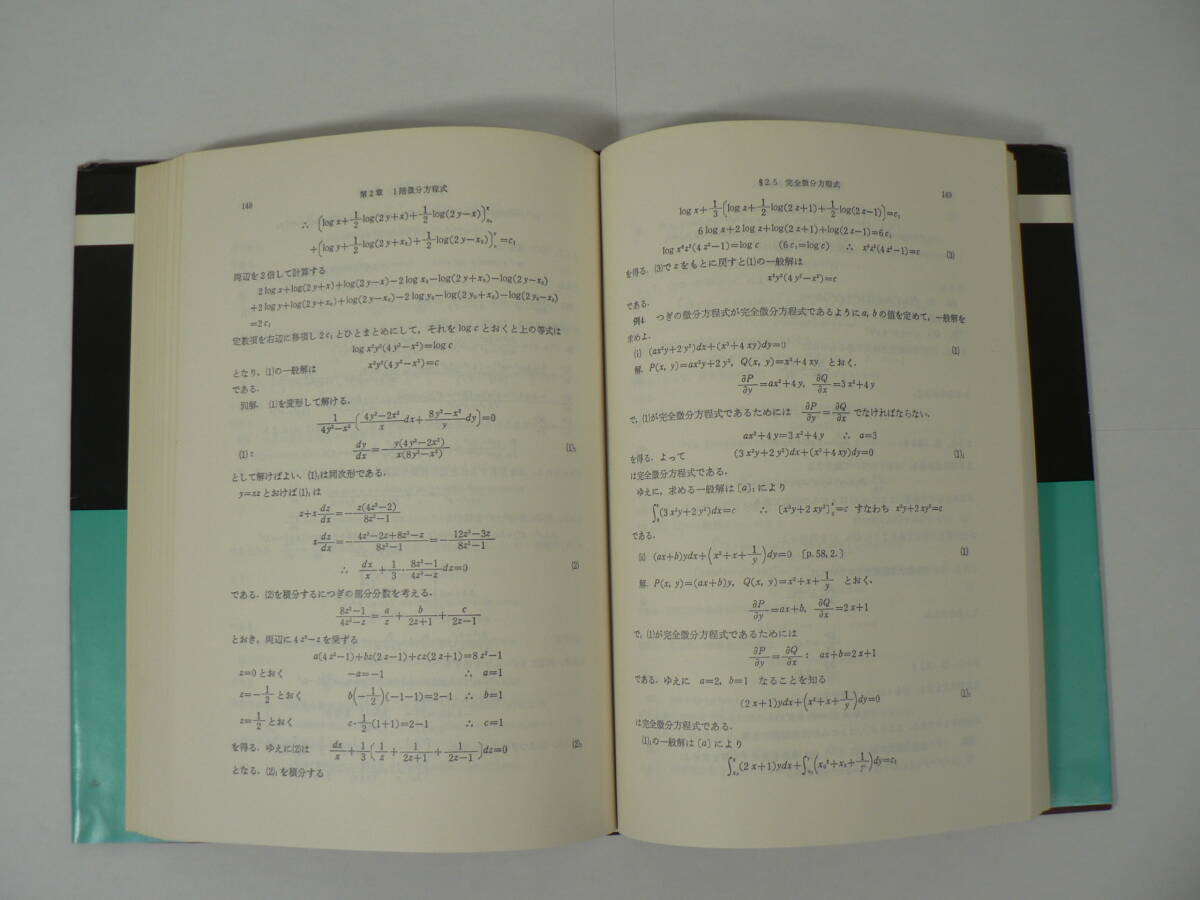 148
第2章 1階微分方程式
∴ {log x+1/2 log(2y+x)+1/2 log(2y−x)}
+{log y+1/2 log(2y+x₀)+1/2 log(2y−x₀)} =c₁
両辺を2倍して計算する
2 log x+log(2y+x)+log(2y−x)−2 log x₀−log(2y+x₀)−log(2y−x₀)
+2 log y+log(2y+x₀)+log(2y−x₀)−2 log y₀−log(2y₀+x₀)−log(2y₀−x₀)
=2c₁
定数項を右辺に移項し2c₁とひとまとめにして,それをlog cとおくと上の等式は
log x²y²(4y²−x²)=log c
となり,(1)の一般解は x²y²(4y²−x²)=c
である.
別解. (1)を変形して解ける.
1/(4y²−x²) ((4y²−2x²)/x dx+(8y²−x²)/y dy)=0
(1): dy/dx=−y(4y²−2x²)/x(8y²−x²) (1)₁
として解けばよい.(1)₁は同次形である.
y=xzとおけば(1)₁は
z+x dz/dx=−z(4z²−2)/(8z²−1)
x dz/dx=−(4z³−2z+8z³−z)/(8z²−1)=−(12z³−3z)/(8z²−1)
∴ dx/x+1/3・(8z²−1)/(4z³−z) dz=0 (2)
である.(2)を積分するにつぎの部分分数を考える.
(8z²−1)/(4z³−z)=a/z+b/(2z+1)+c/(2z−1)
とおき,両辺に4z³−zを乗ずる
a(4z²−1)+bz(2z−1)+cz(2z+1)=8z²−1
z=0とおく −a=−1 ∴ a=1
z=−1/2とおく b(−1/2)(−1−1)=2−1 ∴ b=1
z=1/2とおく c・1/2(1+1)=2−1 ∴ c=1
を得る.ゆえに(2)は dx/x+1/3(1/z+1/(2z+1)+1/(2z−1))dz=0 (2)₁
となる.(2)₁を積分する
§2.5 完全微分方程式
149
log x+1/3{log z+1/2 log(2z+1)+1/2 log(2z−1)}=c₁
6 log x+2 log z+log(2z+1)+log(2z−1)=6c₁
log x⁶z²(4z²−1)=log c (6c₁=log c) ∴ x⁶z²(4z²−1)=c (3)
を得る.(3)でzをもとに戻すと(1)の一般解は
x²y²(4y²−x²)=c
である.
例4. つぎの微分方程式が完全微分方程式であるようにa, bの値を定めて,一般解を
求めよ.
(i) (ax²y+2y²)dx+(x³+4xy)dy=0 (1)
解. P(x, y)=ax²y+2y², Q(x, y)=x³+4xy とおく.
∂P/∂y=ax²+4y, ∂Q/∂x=3x²+4y
で,(1)が完全微分方程式であるためには ∂P/∂y=∂Q/∂x でなければならない.
ax²+4y=3x²+4y ∴ a=3
を得る.よって (3x²y+2y²)dx+(x³+4xy)dy=0 (1)₁
は完全微分方程式である.
ゆえに,求める一般解は[a]₁により
∫(3x²y+2y²)dx=c ∴ [x³y+2xy²]=c すなわち x³y+2xy²=c
である.
(ii) (ax+b)ydx+(x²+x+1/y)dy=0 [p.58, 2.] (1)
解. P(x, y)=(ax+b)y, Q(x, y)=x²+x+1/y とおく.
∂P/∂y=ax+b, ∂Q/∂x=2x+1
で,(1)が完全微分方程式であるためには
∂P/∂y=∂Q/∂x: ax+b=2x+1
である.ゆえに a=2, b=1 なることを知る
(2x+1)ydx+(x²+x+1/y)dy=0 (1)₁
は完全微分方程式である.
(1)₁の一般解は[a]により
∫(2x+1)ydx+∫(x₀²+x₀+1/y)dy=c₁